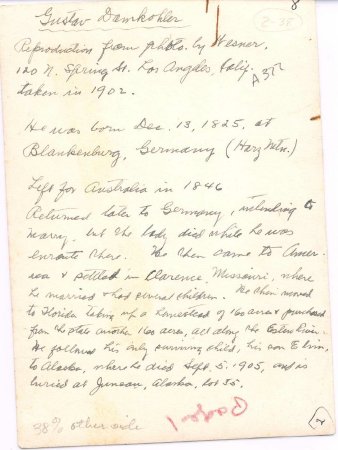 8
Gustav Damkohler
2-38
Reproduction from photo by Wesner,
120 N. Spring St. Los Angeles, Calif.
A 372
taken in 1902.
He was born Dec. 13, 1825, at
Blankenburg, Germany (Harz Mtn.)
Left for Australia in 1846
Returned later to Germany, intending to
marry, but the lady died while he was
enroute there. He then came to Amer-
ica & settled in Clarence, Missouri, where
he married & had several children. He then moved
to Florida taking up a homestead of 160 acres & purchased
from the state another 160 acres, all along the Estero River.
He followed his only surviving child, his son Elwin,
to Alaska, where he died Sept. 5, 1905, and is
buried at Juneau, Alaska, Lot 35.
38% other side